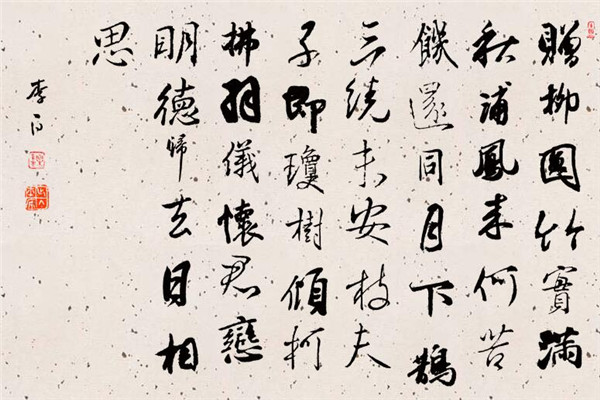 贈柳圓竹實滿
秋浦鳳来何苦
饑還同月下鵲
三繞未安枝夫
子即瓊樹傾柯
拂羽儀懷君戀
明德歸去日相
思
李白